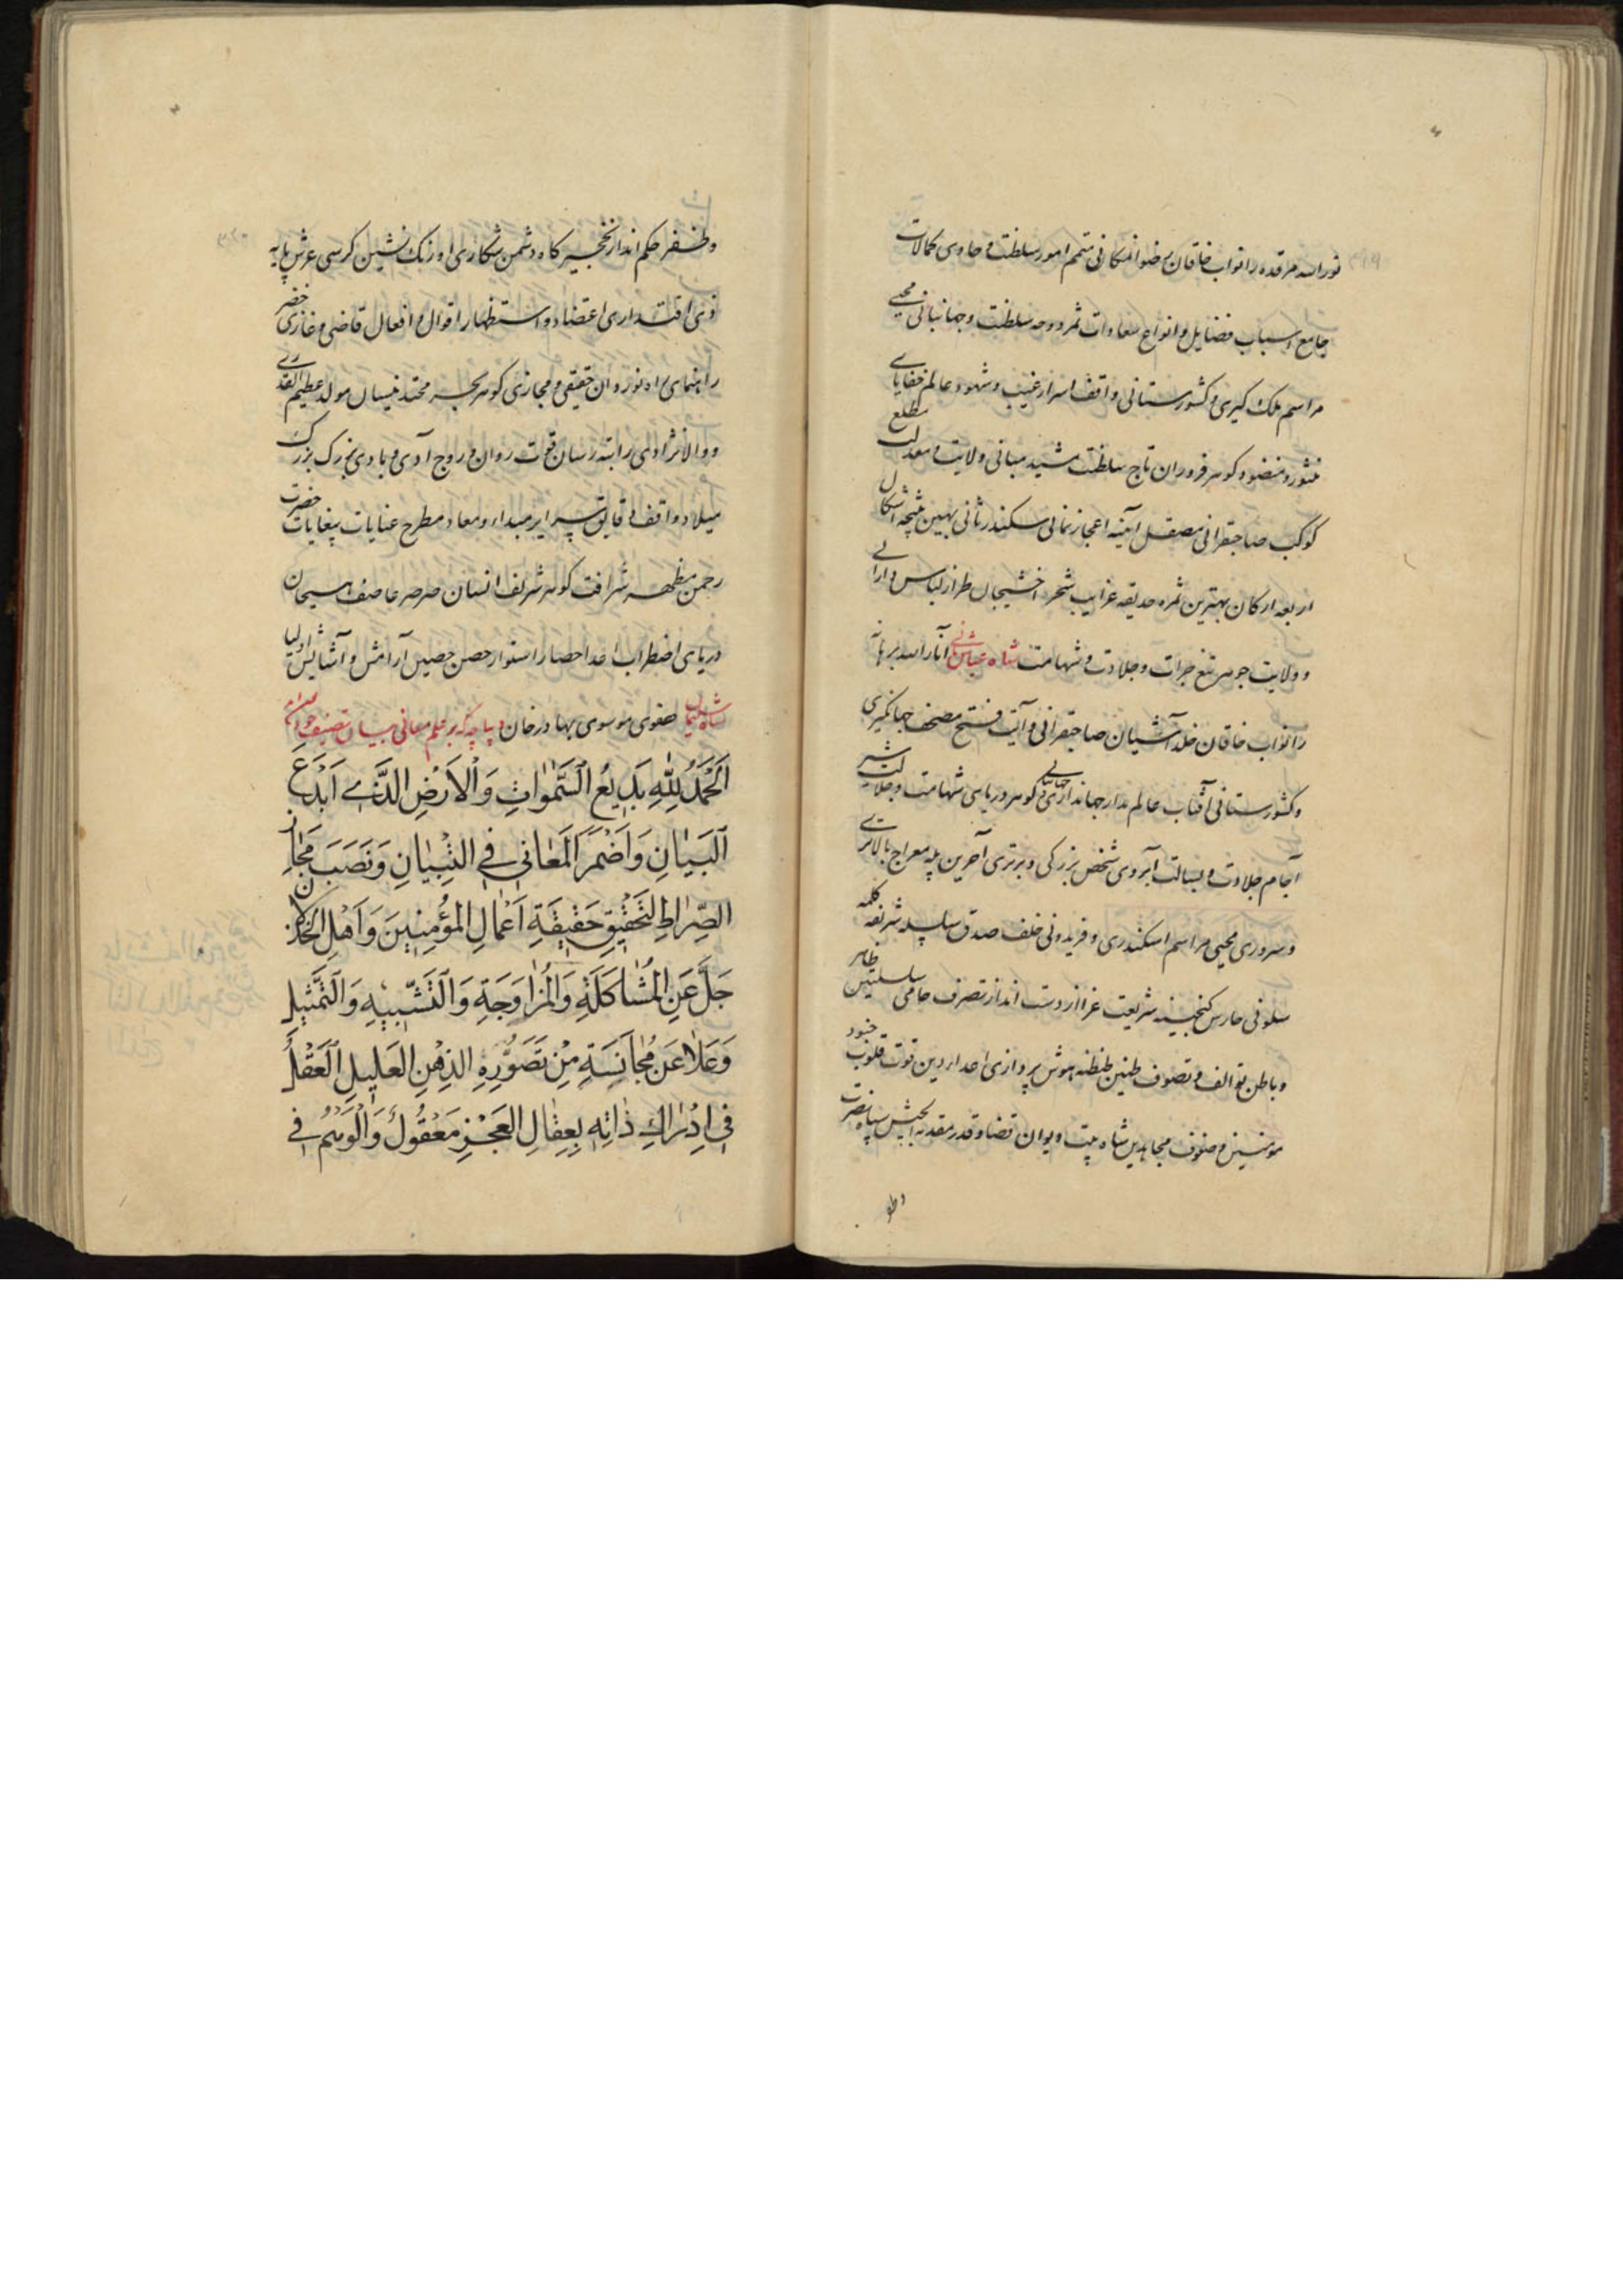 نور الله مرقده را نواب خاقان رضوانمکانی متمم امور سلطنت و حاوی کمالات
جامع اسباب فضایل و انواع سعادات ثمر دوحه سلطنت و جهانبانی محیی
مراسم ملک کیری و کشورستانی واقف اسرار غیب و شهود عالم خفایای
منثور و منضود کوهر فروزان تاج سلطنت مشید مبانی ولایت و معدلت مطلع
کوکب صاحبقرانی مصقل آینه اعجاز نمائی سکندر ثانی بهین نتیجه اشکال
اربعه ارکان بهترین ثمره حدیقه غرایب شجر اخشیجان طراز لباس دارائی
و ولایت جوهر تیغ جرات و جلادت و شهامت شاه عباس ثانی انار الله برهانه
را نواب خاقان خلد آشیان صاحبقرانی و آیت فتح مصحف جهانکیری
و کشورستانی آفتاب عالم مدار جهانداری جهانبانی کوهر دریای شهامت و جلالت شیر
آجام جلادت و بسالت آبروی شخص بزرکی و برتری آخرین پله معراج بالاتری
و سروری محیی مراسم اسکندری و فریدونی خلف صدق سلسله شریفه کلمه
سلونی حارس کنجینه شریعت غرا از دست انداز تصرف حامی سلسلتین ظاهر
و باطن توالف و تصوف طنین طنطنه هوش پردازی اعدا دین قوت قلوب جنود
مومنین و صفوف مجاهدین شاه بیت دیوان قضا و قدر مقدمه الجیش سپاه نصرت
وظفر
وظفر حکم انداز نخجیر کاه دشمن شکاری اورنک نشین کرسی عرش پایه
ذی اقتداری اعتضاد و استظهار اقوال و افعال قاضی و غازی خضر
راهنمای راه نوردان حقیقی و مجازی کوهر بحر محتد نیسان مولد عظیم القدری
و والا نژادی راتبه رسان قوت روان و روح آدی و بادی بزرک بزرک
میلاد واقف دقایق سرایر مبداء و معاد مطرح عنایات بیغایات حضرت
رحمن مظهر شرافت کوهر شریف انسان صرصر عاصف هیجان
دریای اضطراب اعدا حصار استوار حصن حصین آرامش و آسایش اولیا
شاه سلیمان صفوی موسوی بهادرخان دیباچه که بر علم معانی بیان تصنیف خود
اَلْحَمْدُ لِلّٰهِ بَدِيعُ السَّمٰوَاتِ وَالْاَرْضِ الَّذِي اَبْدَعَ
الْبَيَانَ وَاَضْمَرَ الْمَعَانِي فِي التِّبْيَانِ وَنَصَبَ مَجَازَ
الصِّرَاطِ لِتَحْقِيقِ حَقِيقَةِ اَعْمَالِ الْمُؤْمِنِينَ وَاَهْلِ الْخِذْلَانِ
جَلَّ عَنِ الْمُشَاكَلَةِ وَالْمُزَاوَجَةِ وَالتَّشْبِيهِ وَالتَّمْثِيلِ
وَعَلَا عَنْ مُجَانَسَةِ مِنْ تَصَوُّرِهِ الذِّهْنِ الْعَلِيلِ الْعَقْلُ
فِي اِدْرَاكِ ذَاتِهِ بِعِقَالِ الْعَجْزِ مَعْقُولٌ وَالْوَهْمُ فِي